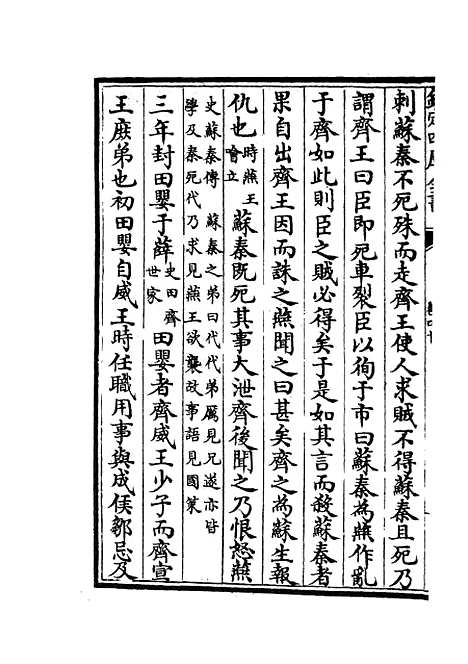 刺蘇秦不死殊而走齊王使人求賊不得蘇秦且死乃
謂齊王曰臣即死車裂臣以徇于市曰蘇秦為燕作亂
于齊如此則臣之賊必得矣于是如其言而殺蘇秦者
果自出齊王因而誅之燕聞之曰甚矣齊之為蘇生報
仇也時燕王噲立蘇秦既死其事大泄齊後聞之乃恨怒燕
史蘇秦傳 蘇秦之弟曰代代弟厲見兄遂亦皆
學及秦死代乃求見燕王欲襲故事語見國策
三年封田嬰于薛史田齊世家田嬰者齊威王少子而齊宣
王庶弟也初田嬰自威王時任職用事與成侯鄒忌及